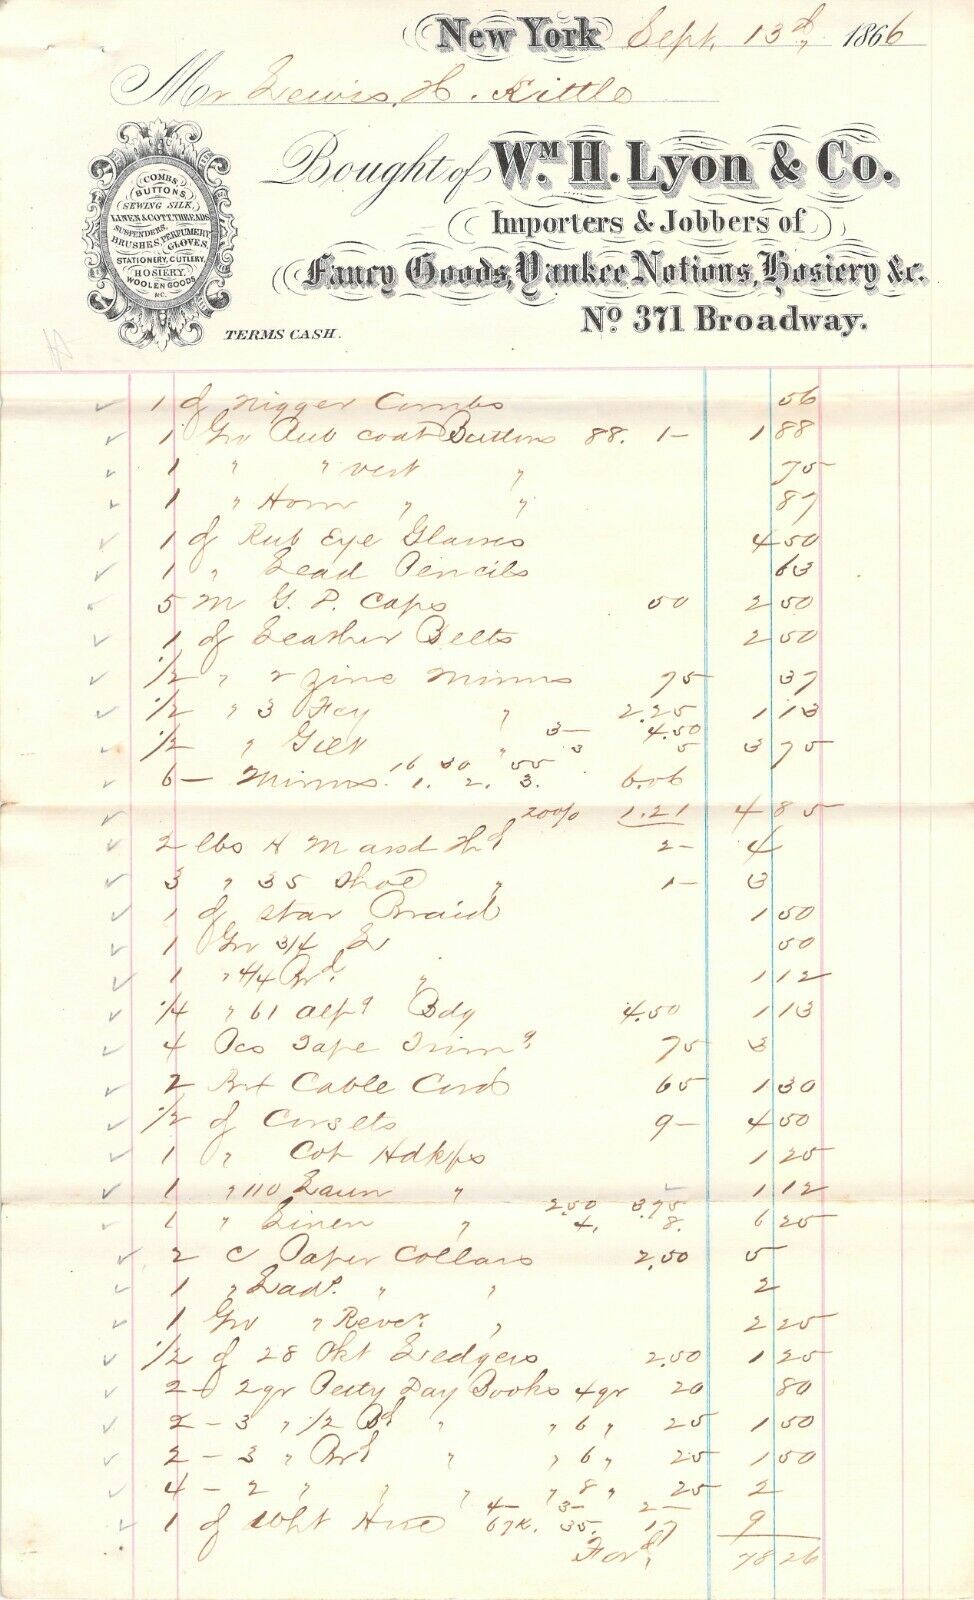 New York Sept. 13th, 1866
Mr Lewis. H. Kittle
Bought of Wm. H. Lyon & Co.
Importers & Jobbers of
Fancy Goods, Yankee Notions, Hosiery &c.
No 371 Broadway.
COMBS,
BUTTONS,
SEWING SILK,
LINEN & COTT. THREADS
SUSPENDERS,
BRUSHES, PERFUMERY
GLOVES,
STATIONERY, CUTLERY,
HOSIERY,
WOOLEN GOODS
&C.
TERMS CASH.
1 d Nigger Combs 56
1 Gro Rub coat Buttons 88. 1- 1 88
1 " " vest " 75
1 " Horn " " 87
1 d Rub Eye Glasses 4 50
1 " Lead Pencils 63
5 M G. D. Caps 50 2 50
1 d Leather Belts 2 50
1/2 " 2 Zinc Mirrors 75 37
1/2 " 3 Fcy " 2.25 1 13
3- 4.50
1/2 " Gilt " 3 5 3 75
16 30 55
6- Mirrors 1. 2. 3. 6.06
20% 1.21 4 85
2 lbs H M and Hd 2- 4
3 " 35 Shoe " 1- 3
1 d Star Braid 1 50
1 Gro 3/4 50
1 " 4/4 Brd. " 1 12
1/4 " 61 Alpa Bdg 4.50 1 13
4 Pcs Tape Trimg. 75 3
2 Bx Cable Cord 65 1 30
1/2 d Corsets 9- 4 50
1 " Cot Hdkfs 1 25
1 " 110 Lawn " 1 12
2.50 3.75
1 " Linen " 4. 8. 6 25
2 C Paper Collars 2.50 5
1 " Lads. " " 2
1 Gro " Rever. " 2 25
1/2 d 28 Pkt Ledgers 2.50 1 25
2 - 2 qr Petty Day Books 4 qr 20 80
2 - 3 " 1/2 Bd " " 6 " 25 1 50
2 - 3 " Brd " " 6 " 25 1 50
4 - 2 " " " " 8 " 25 2
4- 3- 2-
1 d Wht Hose 67K. 35. 17 9
Ford, 78 26